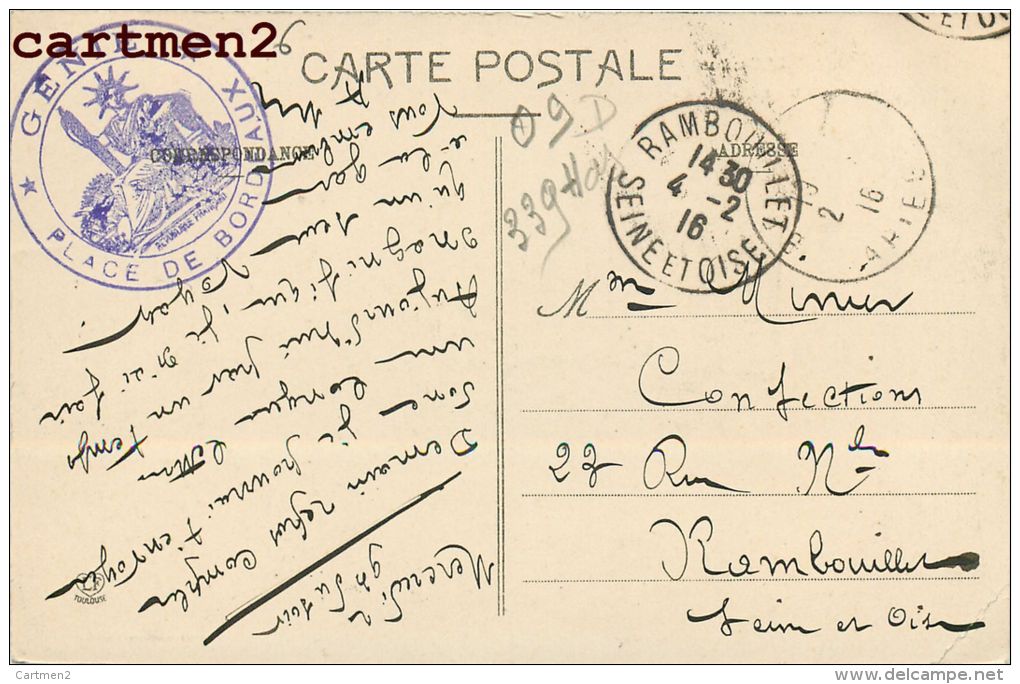 cartmen2
CARTE POSTALE
CORRESPONDANCE
ADRESSE
PLACE DE BORDEAUX
RÉPUBLIQUE FRANÇAISE
RAMBOUILLET
14 30
4 - 2
16
SEINE ET OISE
2
16
ARIEG
ET O
09 D
339
Mercredi
9h du soir
Demain repos complet
je pourrai t'envoyer
une longue lettre
Aujourd'hui par un temps
magnifique j'ai fait
qu'un seul
Vous embrasse
Mme
Confections
23 Rue Nle
Rambouillet
Seine et Oise
TOULOUSE
Cartmen2
www.delcampe.net